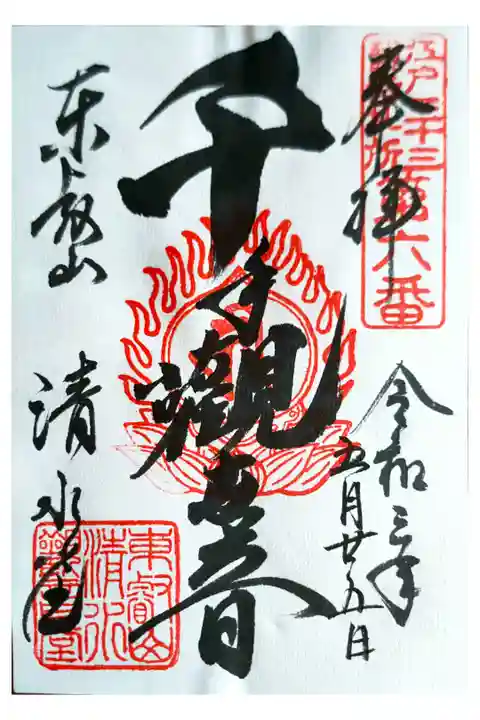 奉拝
江戸三十三番札所第六番
令和三年
五月廿五日
千手觀音
東叡山
清水堂
東叡山
清水
觀音堂